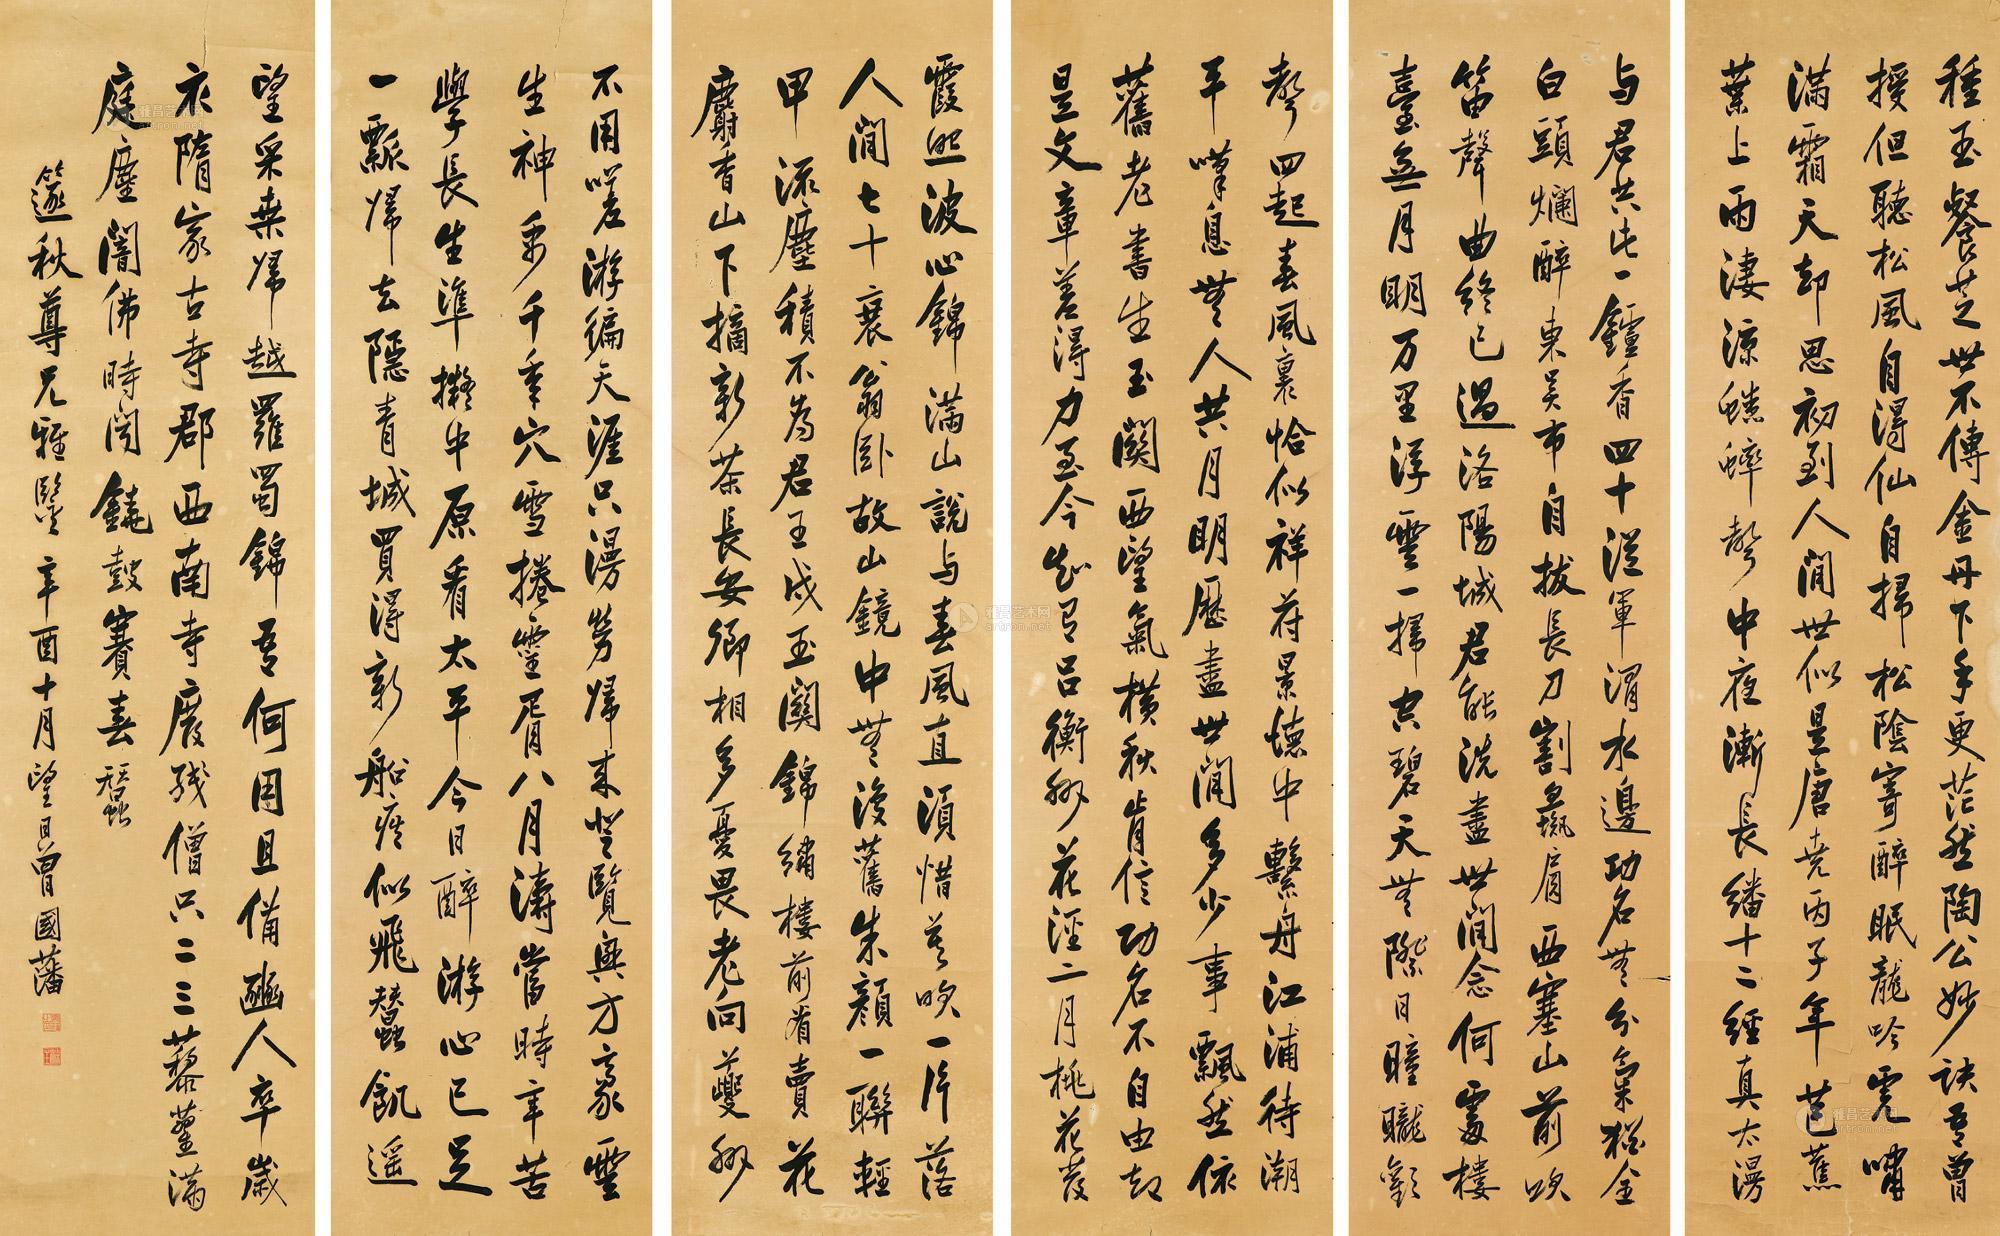 種玉餐芝世不傳金丹下手更茫然陶公妙訣吾曾
授但聽松風自得仙自掃松陰寄醉眠龍吟虎嘯
滿霜天却思初到人間世似是唐堯丙子年芭蕉
葉上雨淒涼蟋蟀聲中夜漸長繙十二經真太漫
与君共此一鑪香四十從軍渭水邊功名無分氣猶全
白頭爛醉東吳市自拔長刀割彘肩西塞山前吹
笛聲曲終已過洛陽城君能洗盡世間念何處樓
臺無月明万里浮雲一掃空碧天無際日曈曨歡
聲四起春風裏恰似祥符景德中繫舟江浦待潮
平嘆息無人共月明歷盡世間多少事飄然依
舊老書生玉關西望氣橫秋肯信功名不自由却
是文章差得力至今知有吕衡州花涇二月桃花發
霞照波心錦滿山說与春風直須惜莫吹一片落
人間七十衰翁卧故山鏡中無復舊朱顏一聯輕
甲流塵積不為君王戍玉關錦繡樓前看賣花
麝香山下摘新茶長安卿相多憂畏老向夔州
不用嗟游徧天涯只漫勞歸來登覽興方豪雲
生神禹千年穴雪捲靈胥八月濤當時辛苦
學長生準擬中原看太平今日醉游心已足
一瓢歸去隱青城買得新船疾似飛蠶飢遥
望采桑歸越羅蜀錦吾何用且備豳人卒歲
衣隋家古寺郡西南寺廢殘僧只二三藜藋滿
庭塵闇佛時聞鐃鼓賽春蠶
篴秋尊兄雅鑒 辛酉十月望日曾國藩
雅昌艺术网
artron.net